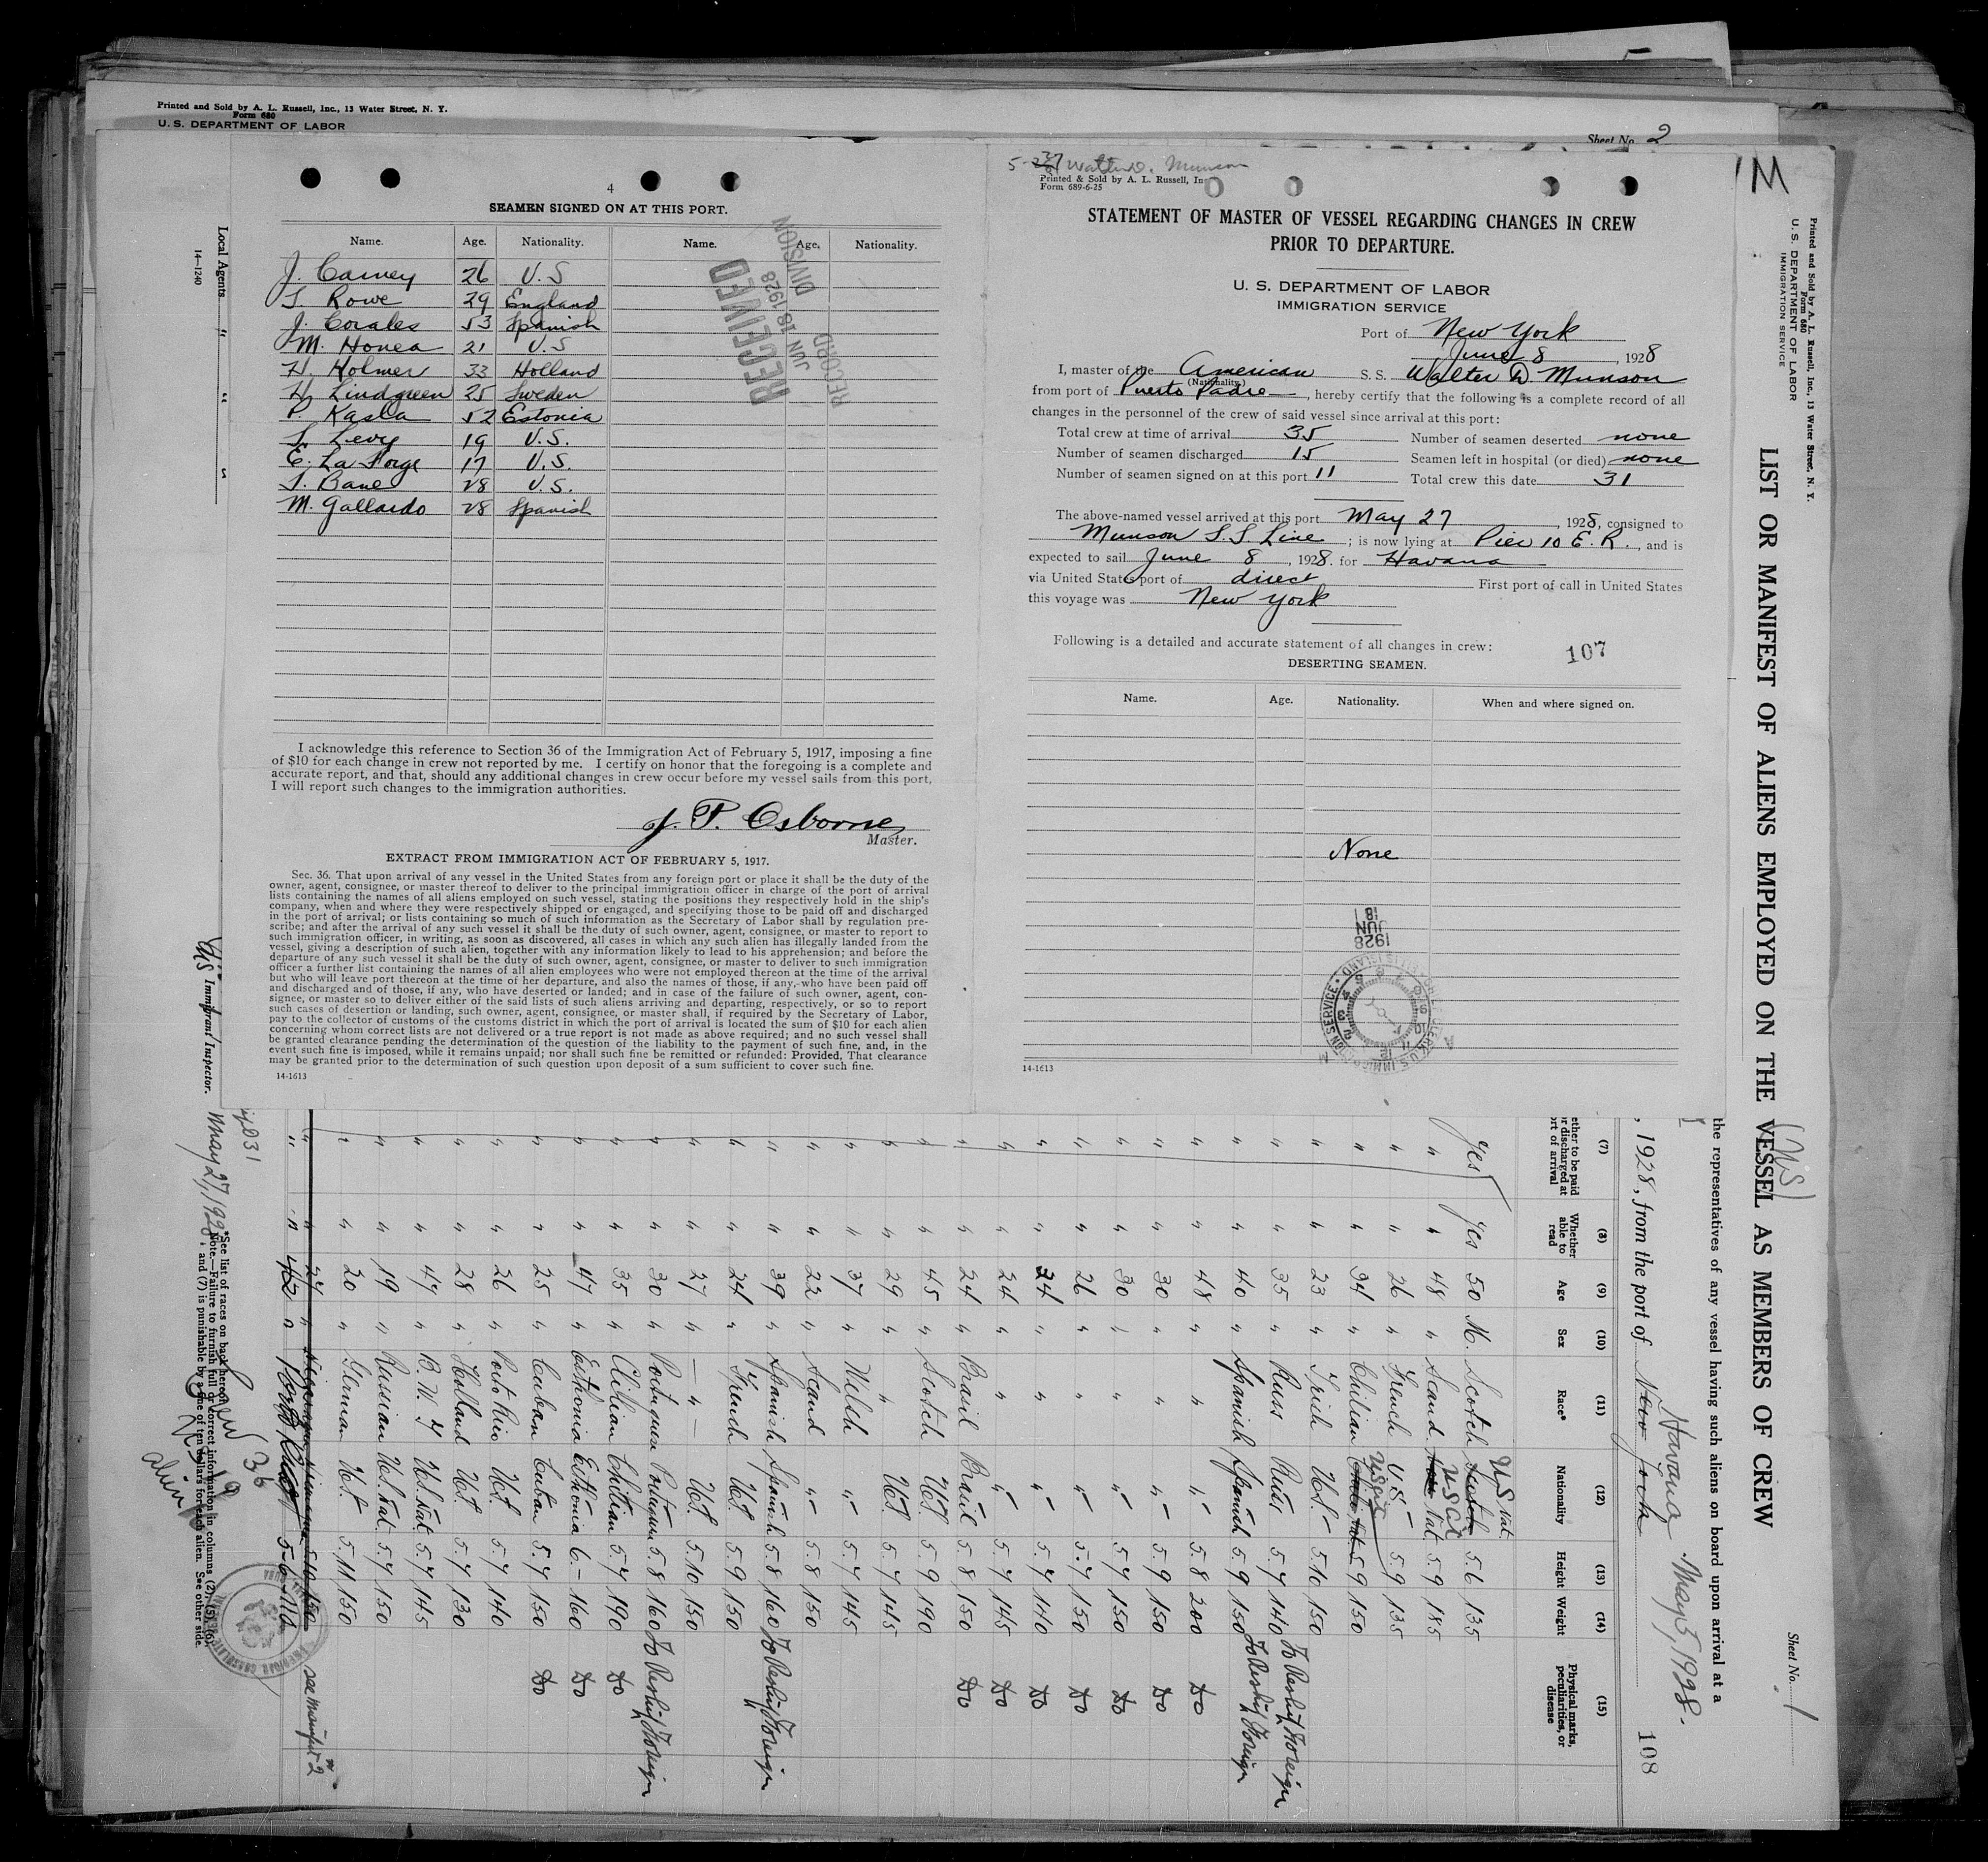 Printed and Sold by A. L. Russell, Inc., 13 Water Street, N. Y.
Form 680
U. S. DEPARTMENT OF LABOR
Sheet No. 2
4
SEAMEN SIGNED ON AT THIS PORT.
Name. Age. Nationality. Name. Age. Nationality.
J. Carney 26 U.S
S. Rowe 29 England
J. Corales 53 Spanish
M. Honea 21 U.S
H. Holmer 33 Holland
H. Lindgreen 25 Sweden
P. Kasla 52 Estonia
S. Levy 19 U.S.
E. La Forge 17 U.S.
S. Bane 28 U.S.
M. Gallardo 28 Spanish
RECEIVED
JUN 18 1928
RECORD DIVISION
I acknowledge this reference to Section 36 of the Immigration Act of February 5, 1917, imposing a fine
of $10 for each change in crew not reported by me. I certify on honor that the foregoing is a complete and
accurate report, and that, should any additional changes in crew occur before my vessel sails from this port,
I will report such changes to the immigration authorities.
J. P. Osborne
Master.
EXTRACT FROM IMMIGRATION ACT OF FEBRUARY 5, 1917.
Sec. 36. That upon arrival of any vessel in the United States from any foreign port or place it shall be the duty of the
owner, agent, consignee, or master thereof to deliver to the principal immigration officer in charge of the port of arrival
lists containing the names of all aliens employed on such vessel, stating the positions they respectively hold in the ship's
company, when and where they were respectively shipped or engaged, and specifying those to be paid off and discharged
in the port of arrival; or lists containing so much of such information as the Secretary of Labor shall by regulation pre-
scribe; and after the arrival of any such vessel it shall be the duty of such owner, agent, consignee, or master to report to
such immigration officer, in writing, as soon as discovered, all cases in which any such alien has illegally landed from the
vessel, giving a description of such alien, together with any information likely to lead to his apprehension; and before the
departure of any such vessel it shall be the duty of such owner, agent, consignee, or master to deliver to such immigration
officer a further list containing the names of all alien employees who were not employed thereon at the time of the arrival
but who will leave port thereon at the time of her departure, and also the names of those, if any, who have been paid off
and discharged and of those, if any, who have deserted or landed; and in case of the failure of such owner, agent, con-
signee, or master so to deliver either of the said lists of such aliens arriving and departing, respectively, or so to report
such cases of desertion or landing, such owner, agent, consignee, or master shall, if required by the Secretary of Labor,
pay to the collector of customs of the customs district in which the port of arrival is located the sum of $10 for each alien
concerning whom correct lists are not delivered or a true report is not made as above required; and no such vessel shall
be granted clearance pending the determination of the question of the liability to the payment of such fine, and, in the
event such fine is imposed, while it remains unpaid; nor shall such fine be remitted or refunded: Provided, That clearance
may be granted prior to the determination of such question upon deposit of a sum sufficient to cover such fine.
14-1613
Walter D. Munson
Printed & Sold by A. L. Russell, Inc
Form 689-6-25
STATEMENT OF MASTER OF VESSEL REGARDING CHANGES IN CREW
PRIOR TO DEPARTURE.
U. S. DEPARTMENT OF LABOR
IMMIGRATION SERVICE
Port of New York
June 8, 1928
I, master of the American S. S. Walter D. Munson
(Nationality.)
from port of Puerto Padre, hereby certify that the following is a complete record of all
changes in the personnel of the crew of said vessel since arrival at this port:
Total crew at time of arrival 35 Number of seamen deserted none
Number of seamen discharged 15 Seamen left in hospital (or died) none
Number of seamen signed on at this port 11 Total crew this date 31
The above-named vessel arrived at this port May 27, 1928, consigned to
Munson S.S. Line; is now lying at Pier 10 E. R., and is
expected to sail June 8, 1928. for Havana
via United States port of direct First port of call in United States
this voyage was New York
Following is a detailed and accurate statement of all changes in crew:
107
DESERTING SEAMEN.
Name. Age. Nationality. When and where signed on.
None
1928 JUN 18
14-1613
M
Printed and Sold by A. L. Russell, Inc., 13 Water Street, N. Y.
Form 680
U. S. DEPARTMENT OF LABOR
IMMIGRATION SERVICE
LIST OR MANIFEST OF ALIENS EMPLOYED ON THE VESSEL AS MEMBERS OF CREW
(US)
Sheet No. 1
the representatives of any vessel having such aliens on board upon arrival at a
, 1928, from the port of New York Havana May 5, 1928.
108
(7) (8) (9) (10) (11) (12) (13) (14) (15)
ether to be paid or discharged at rt of arrival
Whether able to read
Age
Sex
Race*
Nationality
Height
Weight
Physical marks, peculiarities, or disease
yes yes 50 M. Scotch Scotch US Nat. 5.6 135
" " 48 " Scand Nat. 5.9 185
" " 26 " French US 5.9 135
" " 34 " Chilian 5.9 150
" " 23 " Irish U.S. 5.10 150
" " 35 " Russ Russ 5.7 140 To Reship Foreign
" " 40 " Spanish Spanish 5.9 150 To Reship Foreign
" " 48 " " " 5.8 200 Do
" " 30 " " " 5.9 150 Do
" " 30 " " " 5.7 150 Do
" " 26 " " " 5.7 150 Do
" " 34 " " " 5.7 140 Do
" " 24 " " " 5.7 145 Do
" " 24 " Brasil Brasil 5.8 150 Do
" " 45 " Scotch U.S. 5.9 190
" " 29 " " U.S. 5.7 145
" " 37 " Welch " 5.7 145
" " 22 " Scand " 5.8 150
" " 39 " Spanish Spanish 5.8 160 To Reship Foreign
" " 24 " French U.S. 5.9 150
" " 27 " " U.S. 5.10 150
" " 30 " Portuguese 5.8 160 To Reship Foreign
" " 35 " Chilian Chilian 5.7 190 Do
" " 47 " Esthonia Esthonia 6 - 160 Do
" " 25 " Cuban Cuban 5.7 150 Do
" " 26 " Porto Rico U.S. 5.7 140
" " 28 " Holland U.S. 5.7 130
" " 47 " B. W. I U.S. Nat 5.7 145
" " 19 " Russian U.S. Nat. 5.7 150
" " 20 " German U.S. 5.11 150
" " 42 " Porto Rico 5.6
see manifest 2
*See list of races on back hereof.
Note.—Failure to furnish full or correct information in columns (2), (5), (6),
and (7) is punishable by a fine of ten dollars for each alien. See other side.
Local Agents
14-1240
US Immigrant Inspector.
May 27, 1928
36
alien